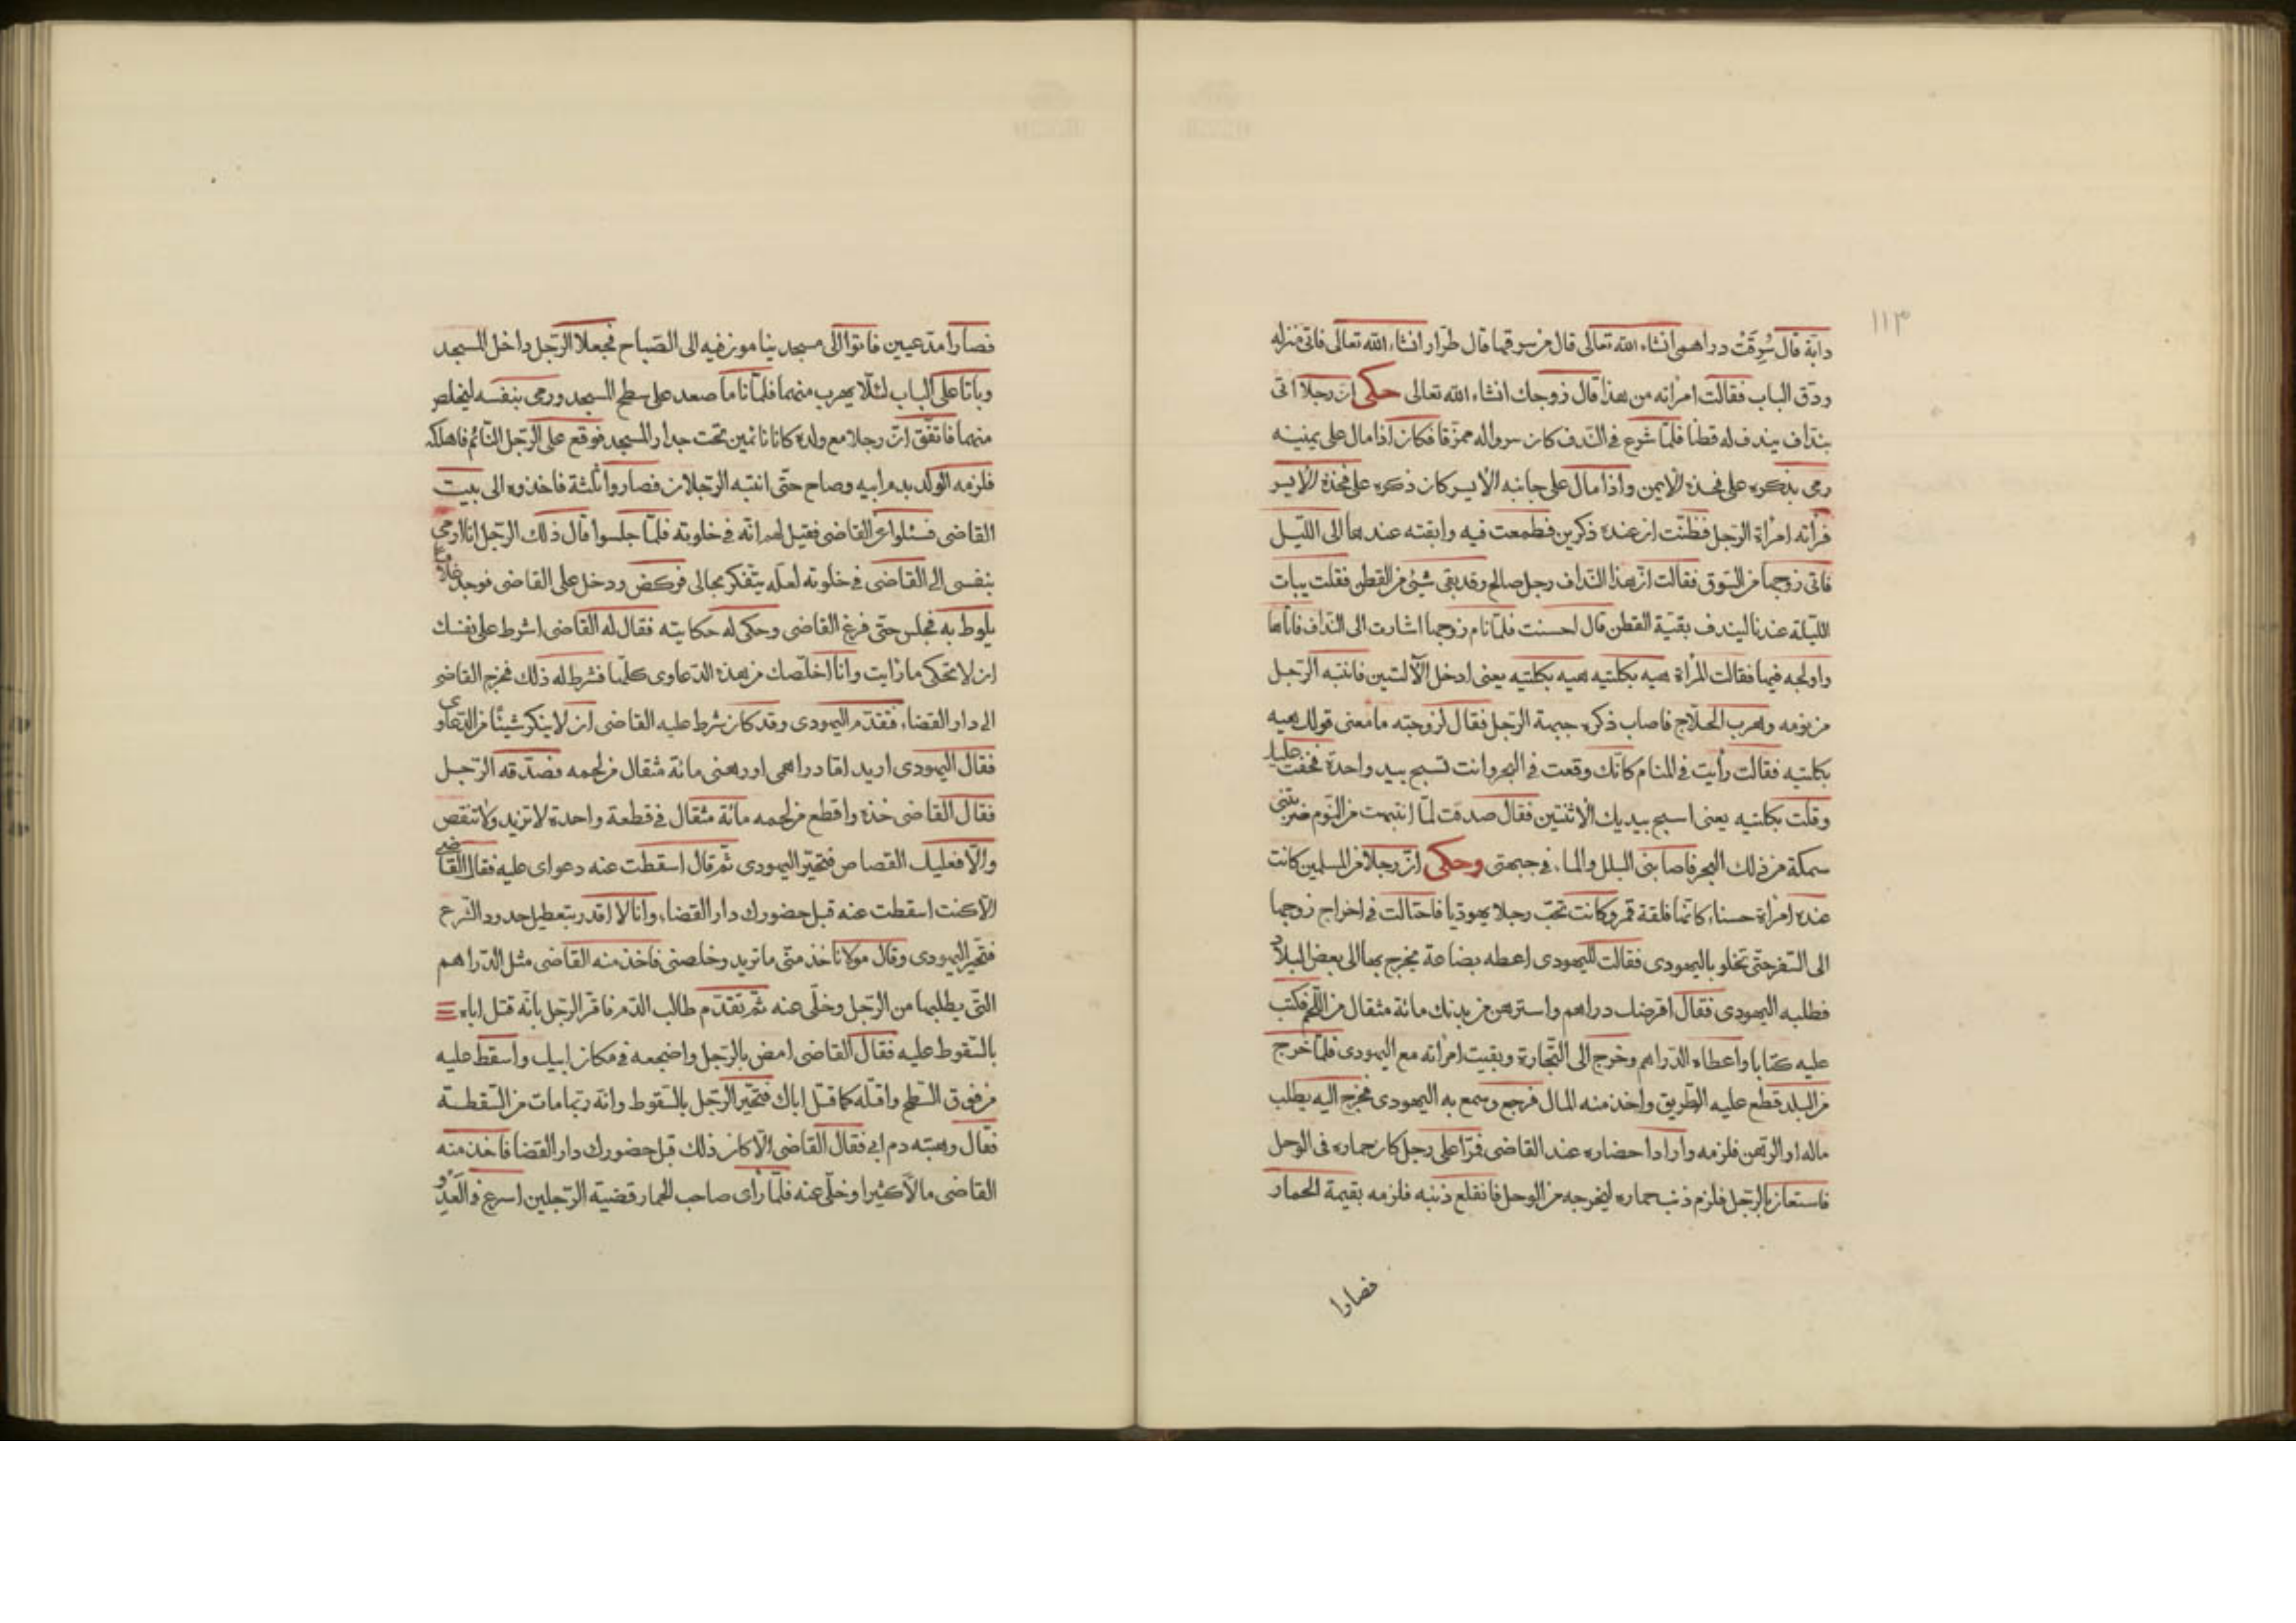 ١١٣
دابة قال سُرِقَتْ دراهمی انشاء الله تعالی قال من سرقها قال طرّار انشاء الله تعالی فاتی منزله
ودق الباب فقالت امرأته من هذا قال زوجك انشاء الله تعالی حکی انّ رجلا اتی
بندّاف یندف له قطنا فلمّا شرع فی الندف کان سرواله ممزّقا فکان اذا مال علی یمینه
رمی بذکره علی فخذه الایمن واذا مال علی جانبه الأیسر کان ذکره علی فخذه الأیسر
فرأته امرأة الرجل فظنّت ان عنده ذکرین فطمعت فیه وابقته عندها الی اللیل
فاتی زوجها من السّوق فقالت انّ هذا الندّاف رجل صالح وقد بقی شیٔ من القطن فقلت یبات
اللیلة عندنا لیندف بقیّة القطن قال احسنت فلمّا نام زوجها اشارت الی الندّاف فاتاها
واولجه فیها فقالت المرأة هیه بکلتیه هیه بکلتیه یعنی ادخل الآلتین فانتبه الرجل
من نومه وهرب الحلّاج فاصاب ذکره جبهة الرجل فقال لزوجته ما معنی قولك هیه
بکلتیه فقالت رأیت فی المنام کانّك وقعت فی البحر وانت تسبح بید واحدة فخفت علیك
وقلت بکلتیه یعنی اسبح بیدیك الاثنتین فقال صدقت لمّا انتبهت من النّوم ضربتنی
سمکة من ذلك البحر فاصابنی البلل والماء فی جبهتی وحکی انّ رجلا من المسلمین کانت
عنده امرأة حسناء کانّها فلقة قمر وکانت تحبّ رجلا یهودیّا فاحتالت فی اخراج زوجها
الی السّفر حتّی تخلو بالیهودی فقالت للیهودی اعطه بضاعة یخرج بها الی بعض البلاد
فطلبه الیهودی فقال اقرضك دراهم واسترهن من بدنك مائة مثقال من اللّحم فکتب
علیه کتابا واعطاه الدّراهم وخرج الی التّجارة وبقیت امرأته مع الیهودی فلمّا خرج
من البلد قطع علیه الطّریق واخذ منه المال فرجع وسمع به الیهودی فخرج الیه یطلب
ماله او الرّهن فلزمه وارادا حضاره عند القاضی فمرّا علی رجل کان حماره فی الوحل
فاستعان بالرّجل فلزم ذنب حماره لیخرجه من الوحل فانقلع ذنبه فلزمه بقیمة الحمار
فصارا
فصارا مدّعیین فاتوا الی مسجد ینامون فیه الی الصّباح فجعلا الرّجل داخل المسجد
وباتا علی الباب لئلّا یهرب منهما فلمّا ناما صعد علی سطح المسجد ورمی بنفسه لیخلص
منهما فاتّفق انّ رجلا مع ولده کانا نائمین تحت جدار المسجد فوقع علی الرّجل النّائم فاهلکه
فلزمه الولد بدم ابیه وصاح حتّی انتبه الرّجلان فصاروا ثلثة فاخذوه الی بیت
القاضی فسئلوا عن القاضی فقیل لهم انّه فی خلوته فلمّا جلسوا قال ذلك الرّجل انا ارمی
بنفسی الی القاضی فی خلوته لعلّه یتفکر بحالی فرکض ودخل علی القاضی فوجد غلاما
یلوط به فجلس حتّی فرغ القاضی وحکی له حکایته فقال له القاضی اشرط علی نفسك
ان لا تحکی ما رأیت وانا اخلّصك من هذه الدّعاوی کلّها فشرط له ذلك فخرج القاضی
الی دار القضاء فتقدّم الیهودی وقد کان شرط علیه القاضی ان لا ینکر شیئًا من الدّعاوی
فقال الیهودی ارید امّا دراهمی او رهنی مائة مثقال من لحمه فصدّقه الرّجل
فقال القاضی خذه واقطع من لحمه مائة مثقال فی قطعة واحدة لا تزید ولا تنقص
والّا فعلیك القصاص فتحیّر الیهودی ثمّ قال اسقطت عنه دعوای علیه فقال القاضی
الّا کنت اسقطت عنه قبل حضورك دار القضاء وانا لا اقدر بتعطیل حدود الشّرع
فتحیّر الیهودی وقال مولانا خذ منّی ما ترید وخلّصنی فاخذ منه القاضی مثل الدّراهم
التّی یطلبها من الرّجل وخلّی عنه ثمّ تقدّم طالب الدّم فاقرّ الرّجل بانّه قتل اباه
بالسّقوط علیه فقال القاضی امض بالرّجل واضجعه فی مکان ابیك واسقط علیه
من فوق السّطح واقتله کما قتل اباك فتحیّر الرّجل بالسّقوط وانّه ربّما مات من السّقطة
فقال وهبته دم ابی فقال القاضی الّا کان ذلك قبل حضورك دار القضا فاخذ منه
القاضی مالاً کثیرا وخلّی عنه فلمّا رأی صاحب الحمار قضیّة الرّجلین اسرع فی العَدْو